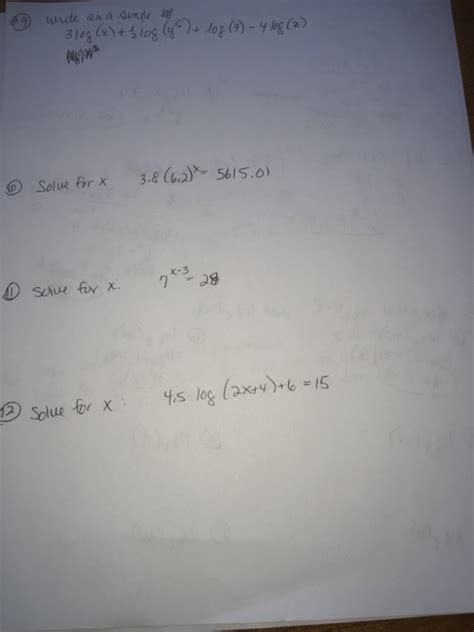 #9 Write as a single log
3log(x) + 1/2 log(y⁶) + log(9) - 4log(2)
10 Solve for x 3.8(6.2)^x = 5615.01
11 Solve for x: 7^(x-3) = 28
12 Solve for x: 4.5 log(2x+4)+6=15